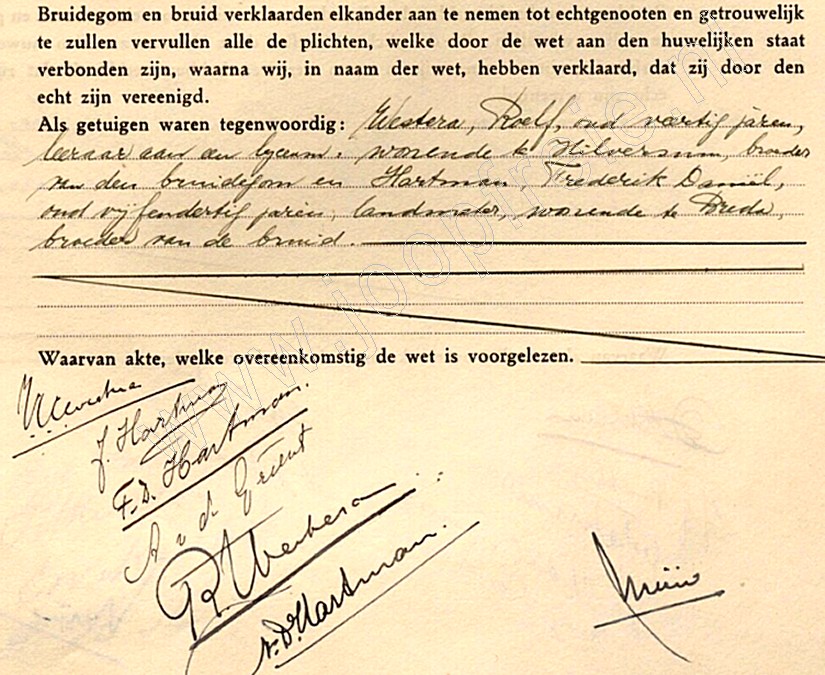 Bruidegom en bruid verklaarden elkander aan te nemen tot echtgenooten en getrouwelijk
te zullen vervullen alle de plichten, welke door de wet aan den huwelijken staat
verbonden zijn, waarna wij, in naam der wet, hebben verklaard, dat zij door den
echt zijn vereenigd.
Als getuigen waren tegenwoordig: Westera, Roelf, oud veertig jaren,
leeraar aan een lyceum, wonende te Hilversum, broeder
van den bruidegom en Hartman, Frederik Daniël,
oud vijfendertig jaren, landmeter, wonende te Breda,
broeder van de bruid.
Waarvan akte, welke overeenkomstig de wet is voorgelezen.
J. Hartman
F.D. Hartman.
A v d Grient
R Westera
Hartman.
www.joopirie.nl